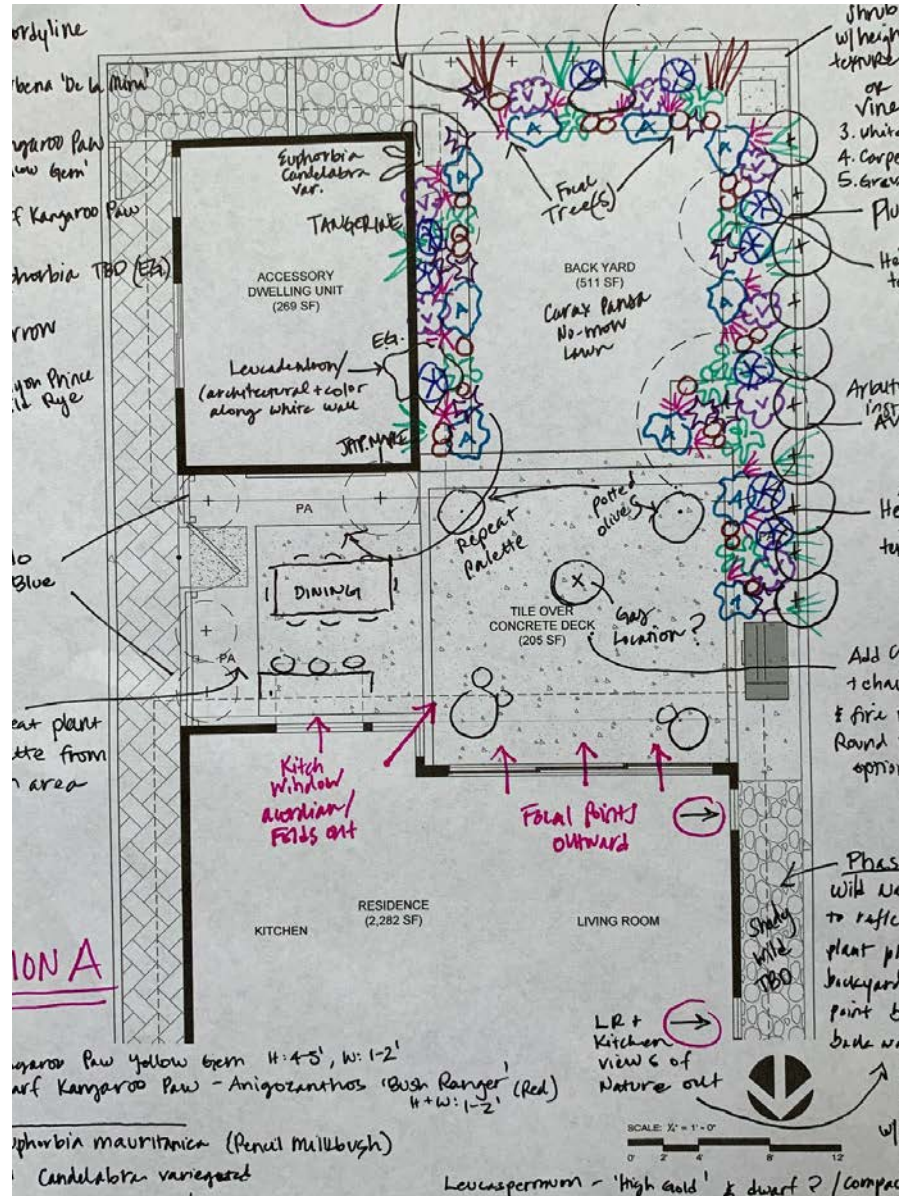 ordyline
rbena 'De la Mina'
ngaroo Paw
low Gem'
f Kangaroo Paw
phorbia TBD (E.G.)
rrow
yon Prince
ld Rye
lo
Blue
eat plant
tte from
n area
ION A
Shrub
w/ height
texture
OR
Vine
3. white
4. Carpe
5. Grav
Plu
He
to
Arbut
inst
Av
He
te
Add C
+ chai
& fire
Round
option
Phas
Wild
to refle
plant p
backyard
point
back
w/
Euphorbia
Candelabra
var.
TANGERINE
ACCESSORY
DWELLING UNIT
(269 SF)
E.G.
Leucadendron/
architectural + color
along white wall
JAP. MAPLE
Focal
Tree(s)
BACK YARD
(511 SF)
Carax Pansa
No-mow
Lawn
PA
Repeat
Palette
Potted
olives
DINING
X
TILE OVER
CONCRETE DECK
(205 SF)
Gas
Location?
PA
Kitch
Window
accordian/
Folds out
Focal Points
outward
RESIDENCE
(2,282 SF)
KITCHEN
LIVING ROOM
Shady
Wild
TBD
LR +
Kitchen
views of
Nature out
ngaroo Paw Yellow Gem H: 4-5', W: 1-2'
arf Kangaroo Paw - Anigozanthos 'Bush Ranger' (Red)
H + W: 1-2'
phorbia mauritanica (Pencil Milkbush)
Candelabra variegated
SCALE: ¼" = 1'-0"
0' 2' 4' 8' 12'
Leucospermum - 'High Gold' & dwarf ? / compac